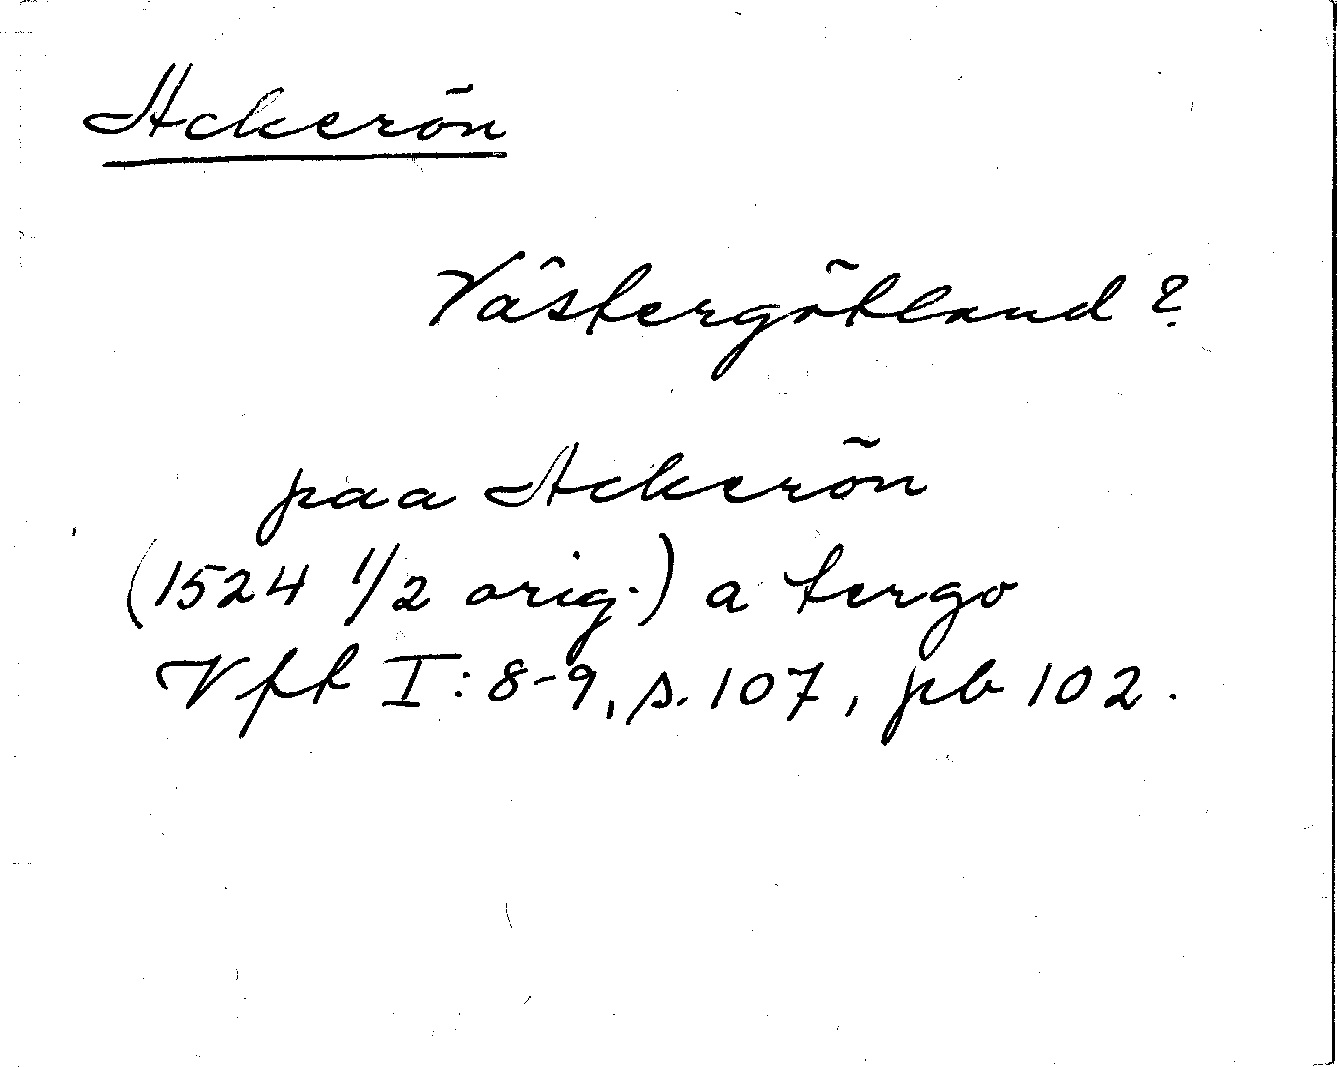 Ackerön
Västergötland?
paa Ackerön
(1524 1/2 orig.) a tergo
Vft I:8-9, s. 107, pb 102.